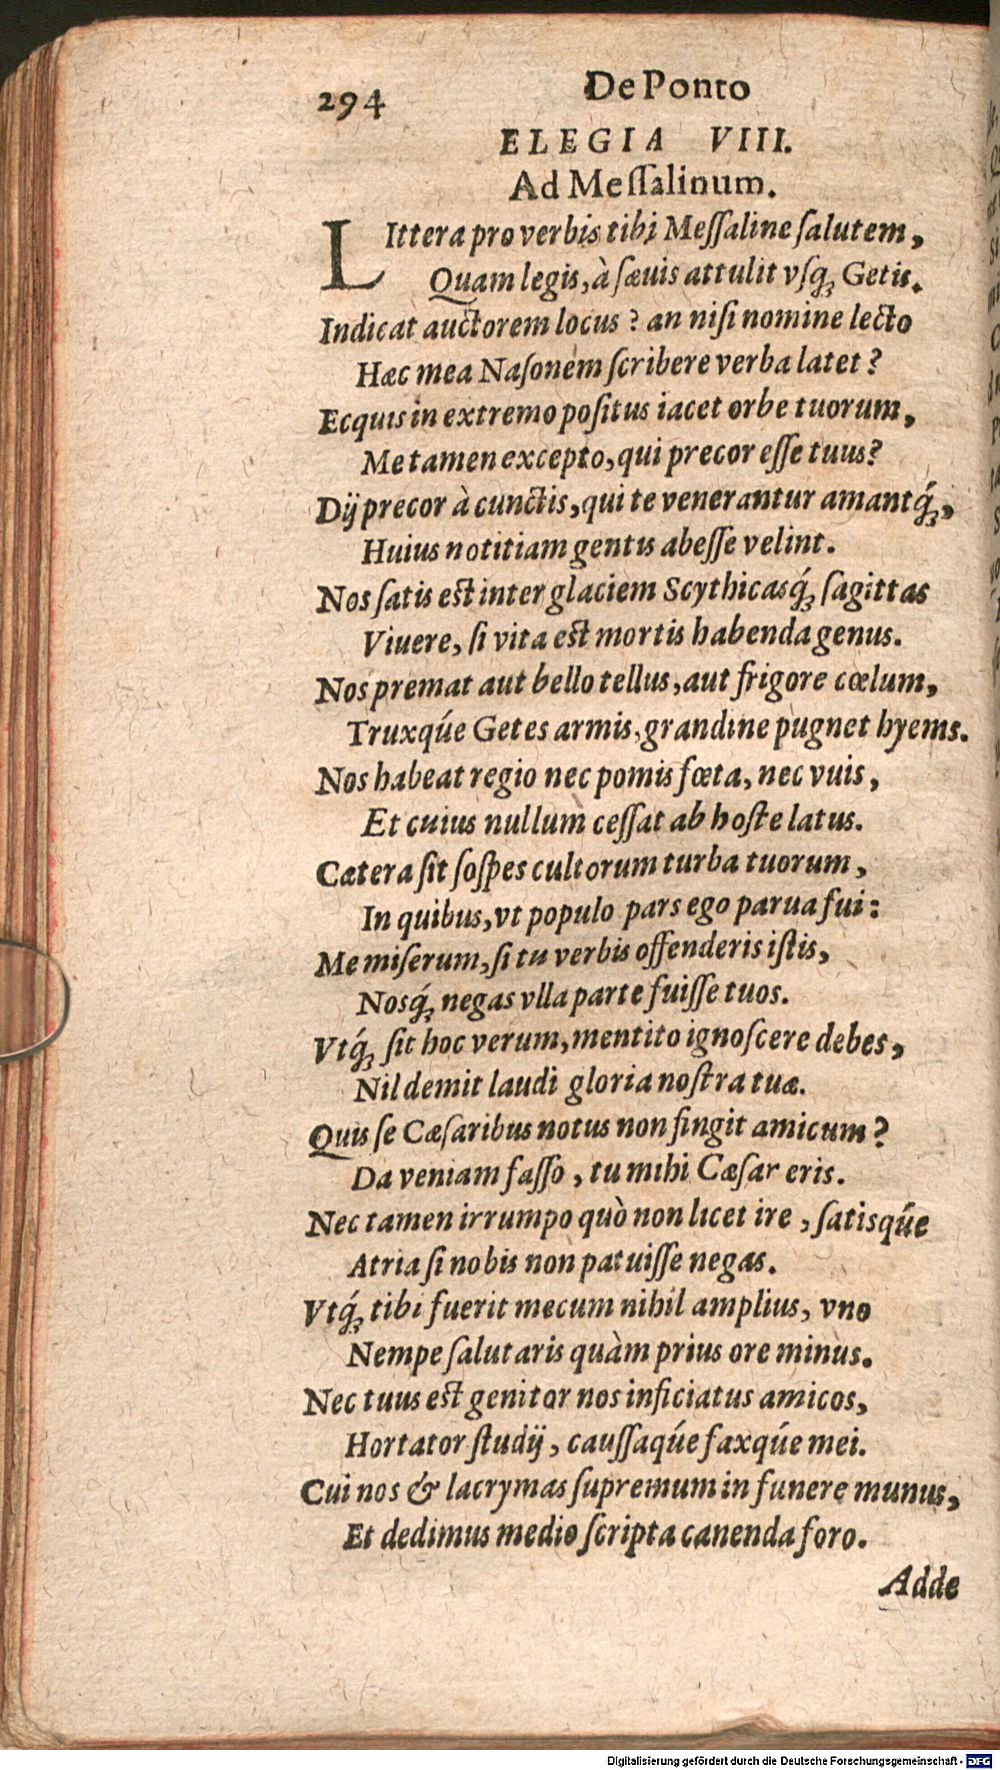 294 De Ponto
ELEGIA VIII.
Ad Meſſalinum.
LIttera pro verbis tibi Meſſaline ſalutem,
Quam legis, à ſæuis attulit vſq́; Getis.
Indicat auctorem locus? an niſi nomine lecto
Hæc mea Naſonem ſcribere verba latet?
Ecquis in extremo poſitus iacet orbe tuorum,
Me tamen excepto, qui precor eſſe tuus?
Dij precor à cunctis, qui te venerantur amantq́;,
Huius notitiam gentis abeſſe velint.
Nos ſatis est inter glaciem Scythicasq́; ſagittas
Viuere, ſi vita est mortis habenda genus.
Nos premat aut bello tellus, aut frigore cœlum,
Truxqúe Getes armis, grandine pugnet hyems.
Nos habeat regio nec pomis fœta, nec vuis,
Et cuius nullum ceſſat ab hoſte latus.
Cætera ſit ſoſpes cultorum turba tuorum,
In quibus, vt populo pars ego parua fui:
Me miſerum, ſi tu verbis offenderis iſtis,
Nosq́; negas vlla parte fuiſſe tuos.
Vtq́; ſit hoc verum, mentito ignoſcere debes,
Nil demit laudi gloria noſtra tuæ.
Quis ſe Cæſaribus notus non fingit amicum?
Da veniam faſſo, tu mihi Cæſar eris.
Nec tamen irrumpo quò non licet ire, ſatisqúe
Atria ſi nobis non patuiſſe negas.
Vtq́; tibi fuerit mecum nihil amplius, vno
Nempe ſalutaris quàm prius ore minus.
Nec tuus est genitor nos inficiatus amicos,
Hortator ſtudij, cauſſaqúe faxqúe mei.
Cui nos & lacrymas ſupremum in funere munus,
Et dedimus medio ſcripta canenda foro.
Adde
Digitalisierung gefördert durch die Deutsche Forschungsgemeinschaft - DFG